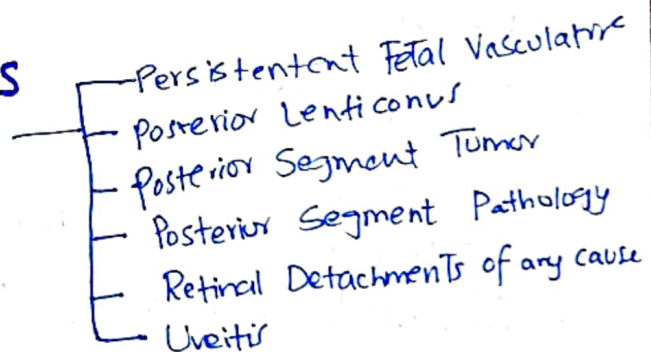 S
Persistentent Fetal Vasculature
Posterior Lenticonus
Posterior Segment Tumor
Posterior Segment Pathology
Retinal Detachments of any cause
Uveitis